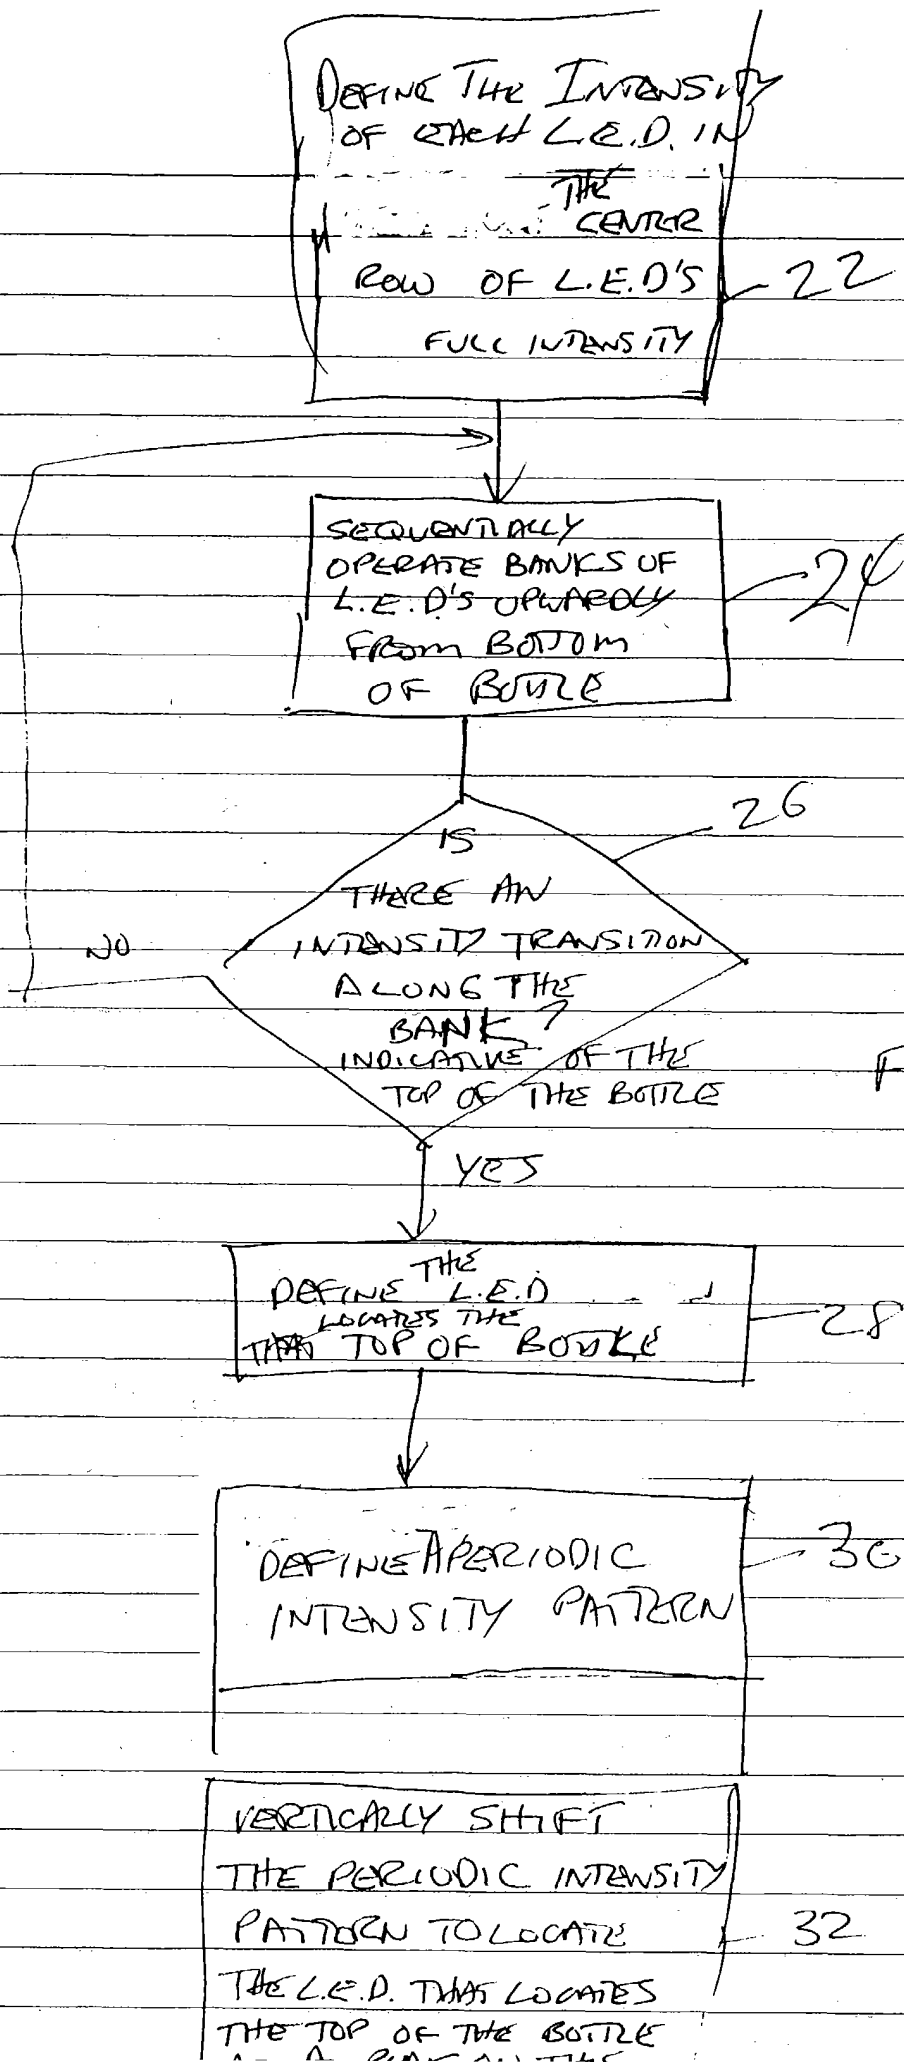 DEFINE THE INTENSITY
OF EACH L.E.D. IN
THE
CENTER
ROW OF L.E.D'S
FULL INTENSITY
22
SEQUENTIALLY
OPERATE BANKS OF
L.E.D'S UPWARDLY
FROM BOTTOM
OF BOTTLE
24
26
IS
THERE AN
INTENSITY TRANSITION
ALONG THE
BANK?
INDICATIVE OF THE
TOP OF THE BOTTLE
NO
F
YES
THE
DEFINE L.E.D
LOCATES THE
THAT TOP OF BOTTLE
28
DEFINE A PERIODIC
INTENSITY PATTERN
30
VERTICALLY SHIFT
THE PERIODIC INTENSITY
PATTERN TO LOCATE
THE L.E.D. THAT LOCATES
THE TOP OF THE BOTTLE
32